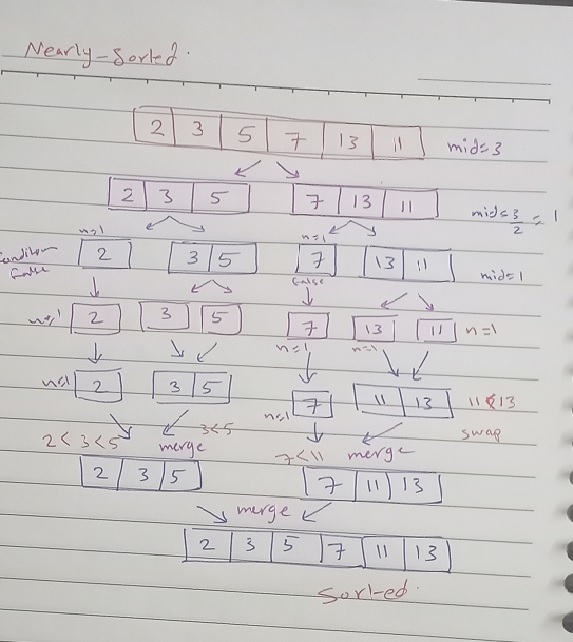 Nearly-Sorted.
2 3 5 7 13 11 mid=3
2 3 5 7 13 11 mid=3/2=1
n=1 n=1
Condition False 2 3 5 7 13 11 mid=1
False
n=1 2 3 5 7 13 11 n=1
n=1 n=1
n=1 2 3 5 n=1 7 11 13 11<13
swap
2<3<5 3<5 merge 7<11 merge
2 3 5 7 11 13
merge
2 3 5 7 11 13
Sorted.